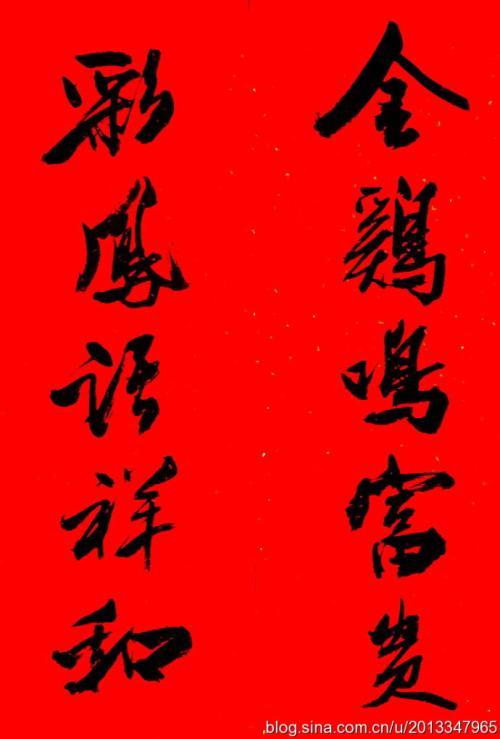 金鷄鳴富贵
彩鳳语祥和
blog.sina.com.cn/u/2013347965